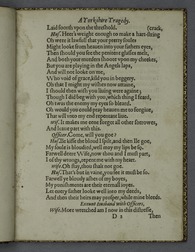 A Yorkshire Tragedy.
Laid foorth upon the threshold. (crack,
Hus. Here's weight enough to make a hart-string
Oh were it lawfull that your pretty soules
Might looke from heaven into your fathers eyes,
Then should you see the penitent glasses melt,
And both your murders shoote upon my cheekes,
But you are playing in the Angels laps,
And will not looke on me,
Who void of grace, kild you in beggery.
Oh that I might my wishes now attaine,
I should then wish you living were againe:
Though I did beg with you, which thing I feard,
Oh twas the enemy my eyes so bleard.
Oh would you could pray heaven me to forgive,
That will unto my end repentant live.
Wif. It makes me even forget all other sorrowes,
And leave part with this.
Officer. Come, will you goe?
Hus. Ile kisse the bloud I spilt, and then Ile goe,
My soule is bloudied, well may my lips be so.
Farwell deere Wife, now thou and I must part,
I of thy wrongs, repent me with my heart.
Wife. Oh stay, thou shalt not goe.
Hus. That's but in vaine, you see it must be so.
Farwell ye bloudy ashes of my boyes,
My punishments are their eternall joyes.
Let every father looke well into my deeds,
And then their heirs may prosper, while mine bleeds.
Exeunt Husband with Officers.
Wife. More wretched am I now in this distresse,
D 2 Then